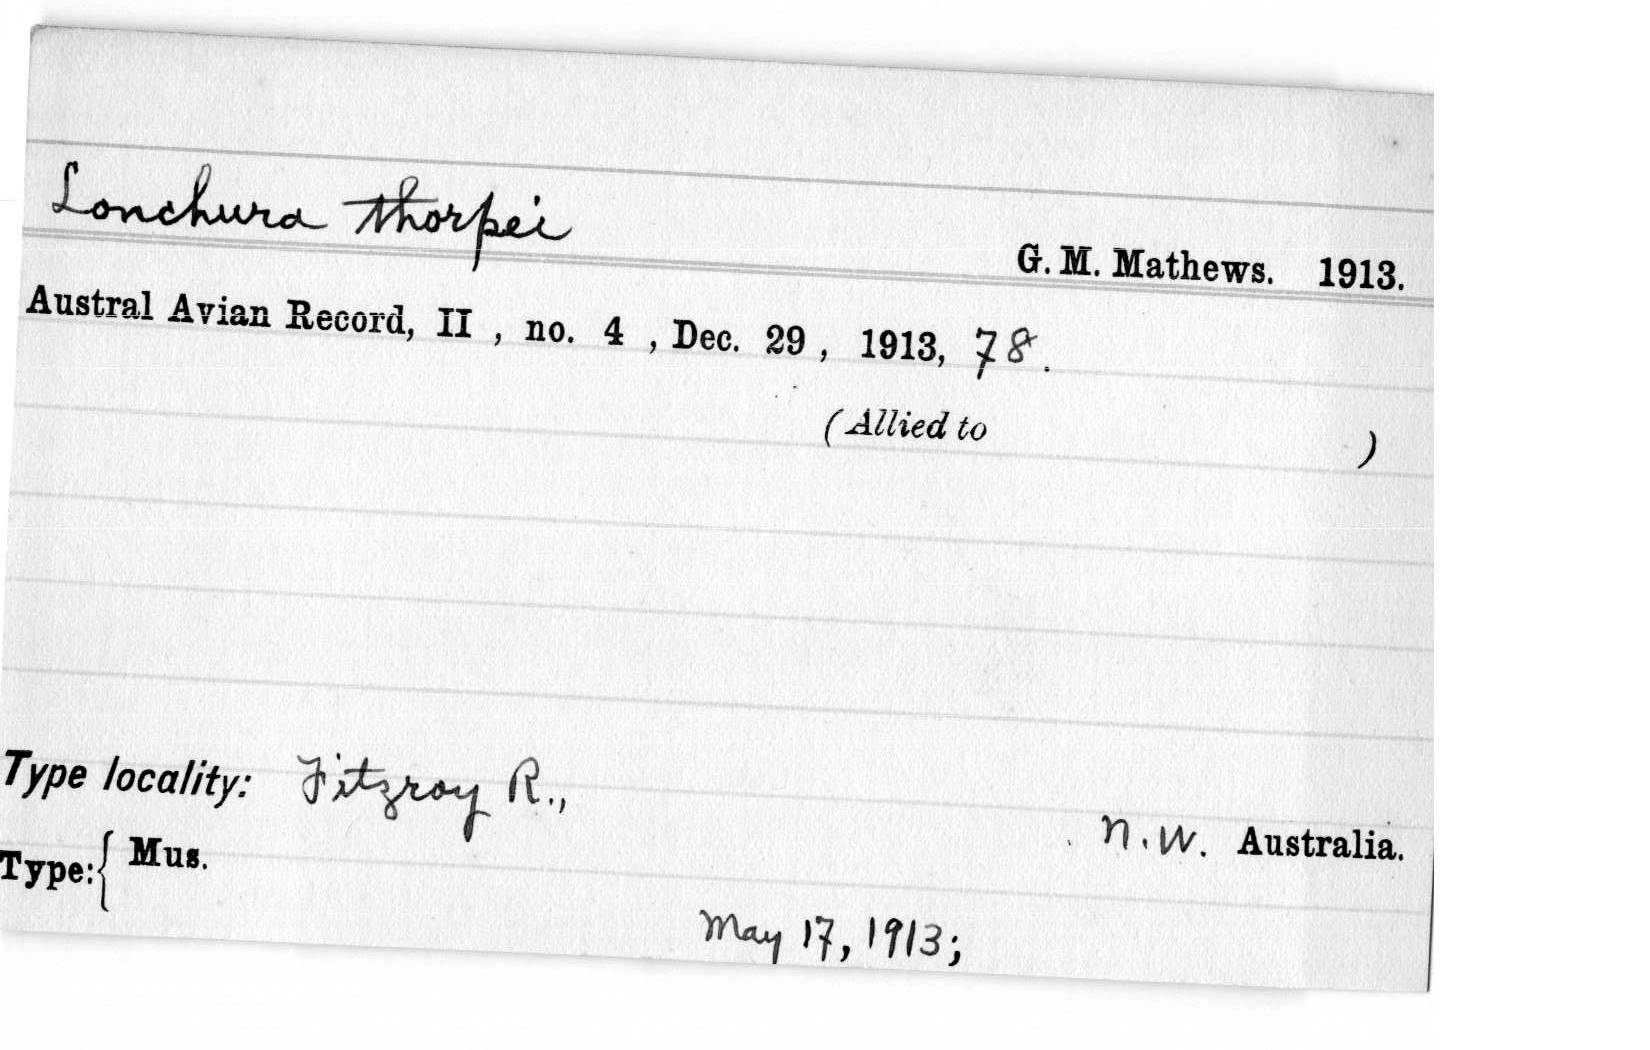 Lonchura thorpei
G. M. Mathews. 1913.
Austral Avian Record, II , no. 4 , Dec. 29 , 1913, 78.
(Allied to )
Type locality: Fitzroy R.,
N.W. Australia.
Type:{ Mus.
May 17, 1913;